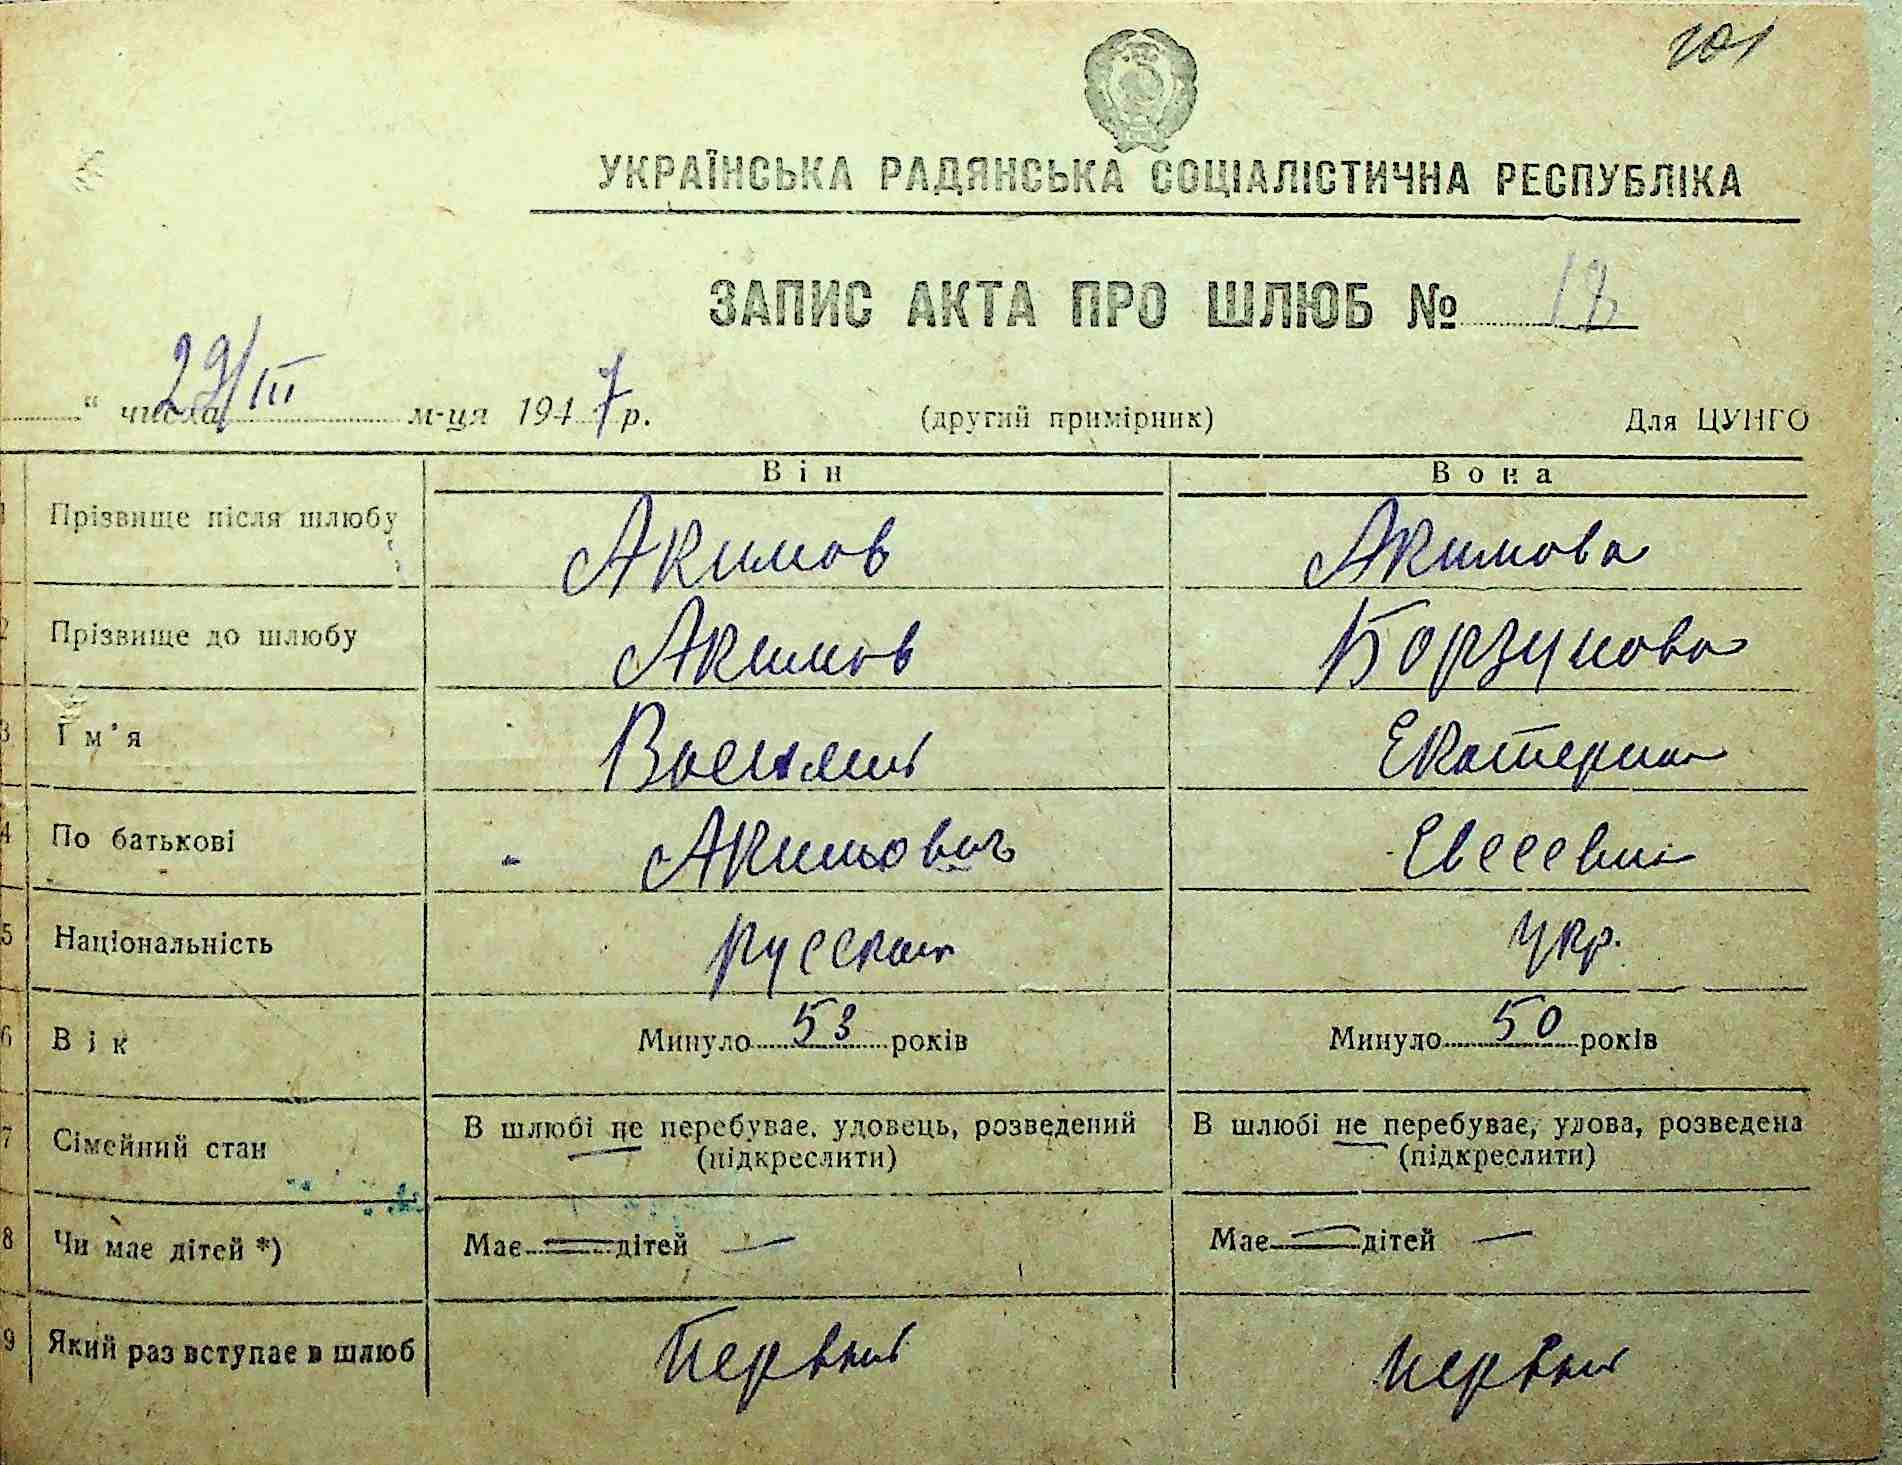 101
УКРАЇНСЬКА РАДЯНСЬКА СОЦІАЛІСТИЧНА РЕСПУБЛІКА
ЗАПИС АКТА ПРО ШЛЮБ №
“ числа 29/III м-ця 1947 р. (другий примірник) Для ЦУНГО
Він Вона
1 Прізвище після шлюбу Акимов Акимова
2 Прізвище до шлюбу Акимов Борзунова
3 Ім'я Василий Екатерина
4 По батькові Акимович Евсеевна
5 Національність русский Укр.
6 Вік Минуло 53 років Минуло 50 років
7 Сімейний стан В шлюбі не перебуває, удовець, розведений В шлюбі не перебуває, удова, розведена
(підкреслити) (підкреслити)
8 Чи має дітей *) Має — дітей — Має — дітей —
9 Який раз вступає в шлюб Первый первый